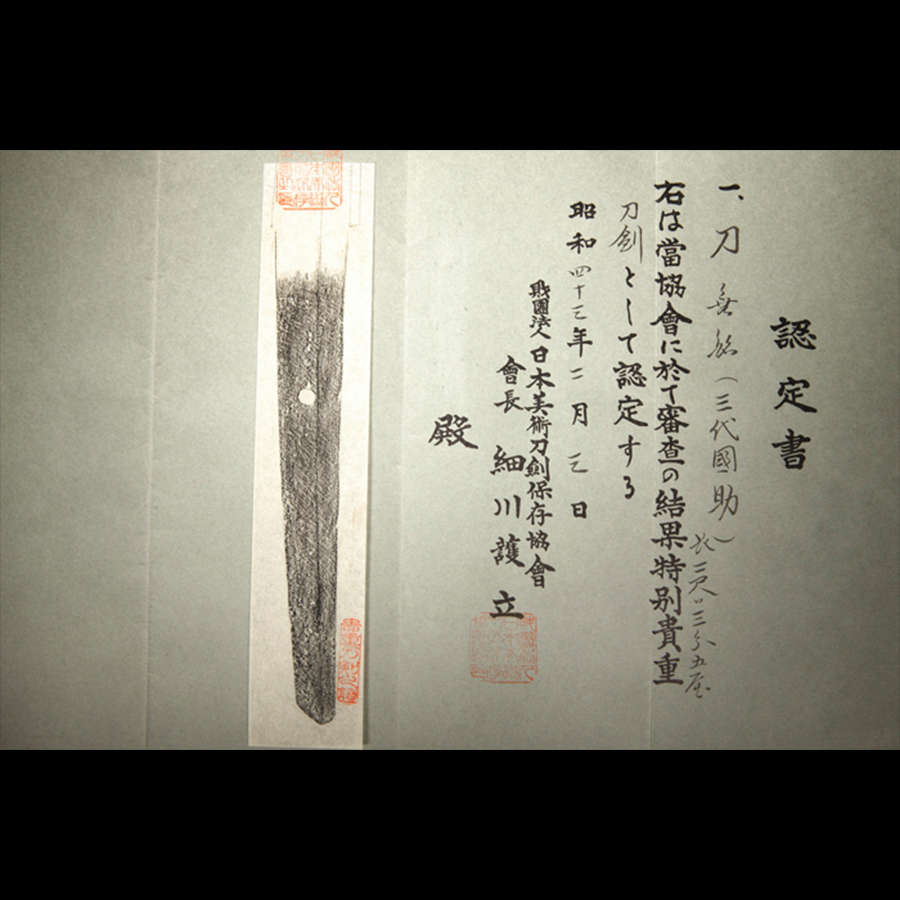 認定書
一、刀 無銘(三代國助)
長二尺三分五厘
右は當協會に於て審査の結果特別貴重
刀劍として認定する
昭和四十三年二月三日
財團法人日本美術刀劍保存協會
會長 細川護立
殿